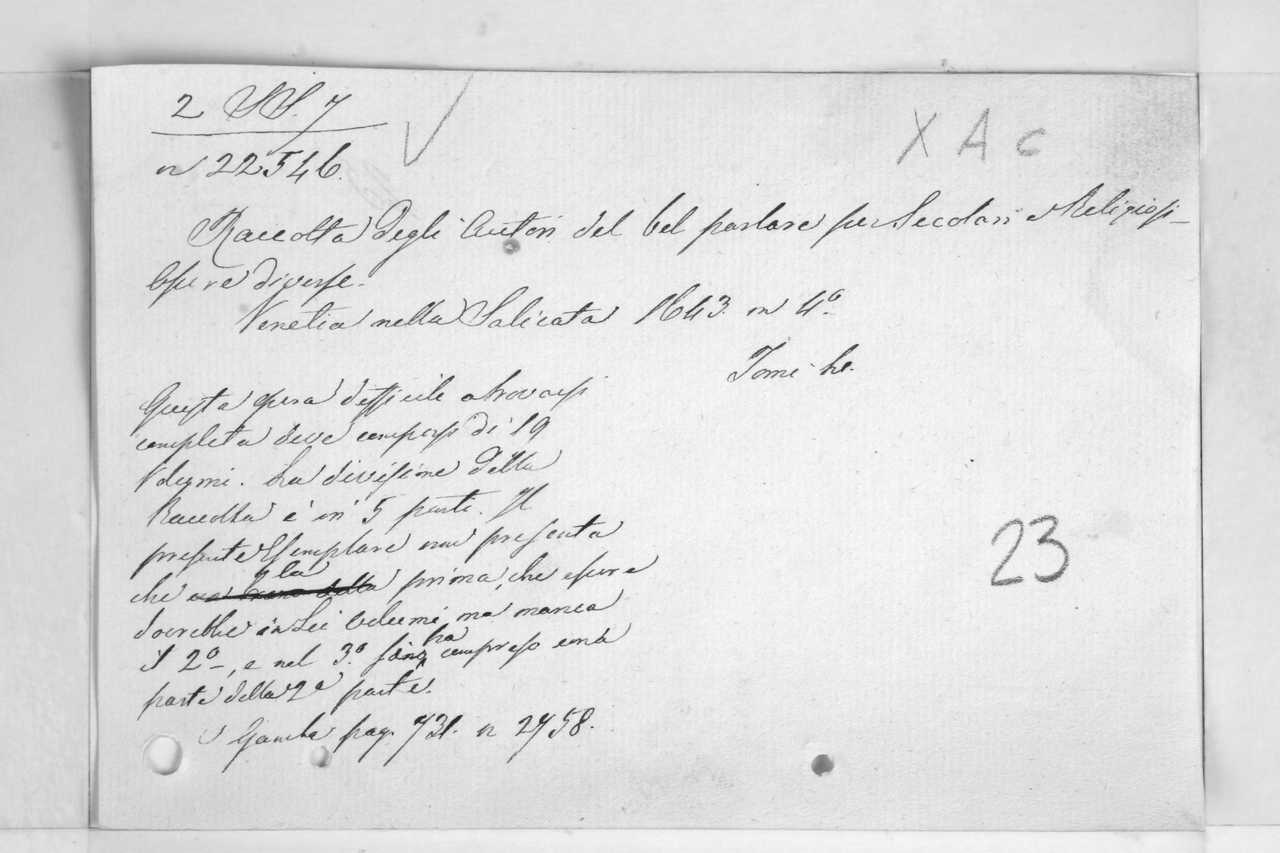 2 SS. 7
n 22546.
X A c
Raccolta degli Autori del bel parlare per Secolari e Religiosi
Opere diverse.
Venetia nella Salicata 1643. in 4º
Tomi
Questa opera difficile a trovarsi
completa deve comporsi di 19
Volumi. La divisione della
Raccolta è in 5 parti. Il
presente Esemplare non presenta
che la prima, che essere
dovrebbe in Sei Volumi, ma manca
il 2º, e nel 3º ha compreso una
parte della 2ª parte.
V Gamba pag. 731. n 2758.
23